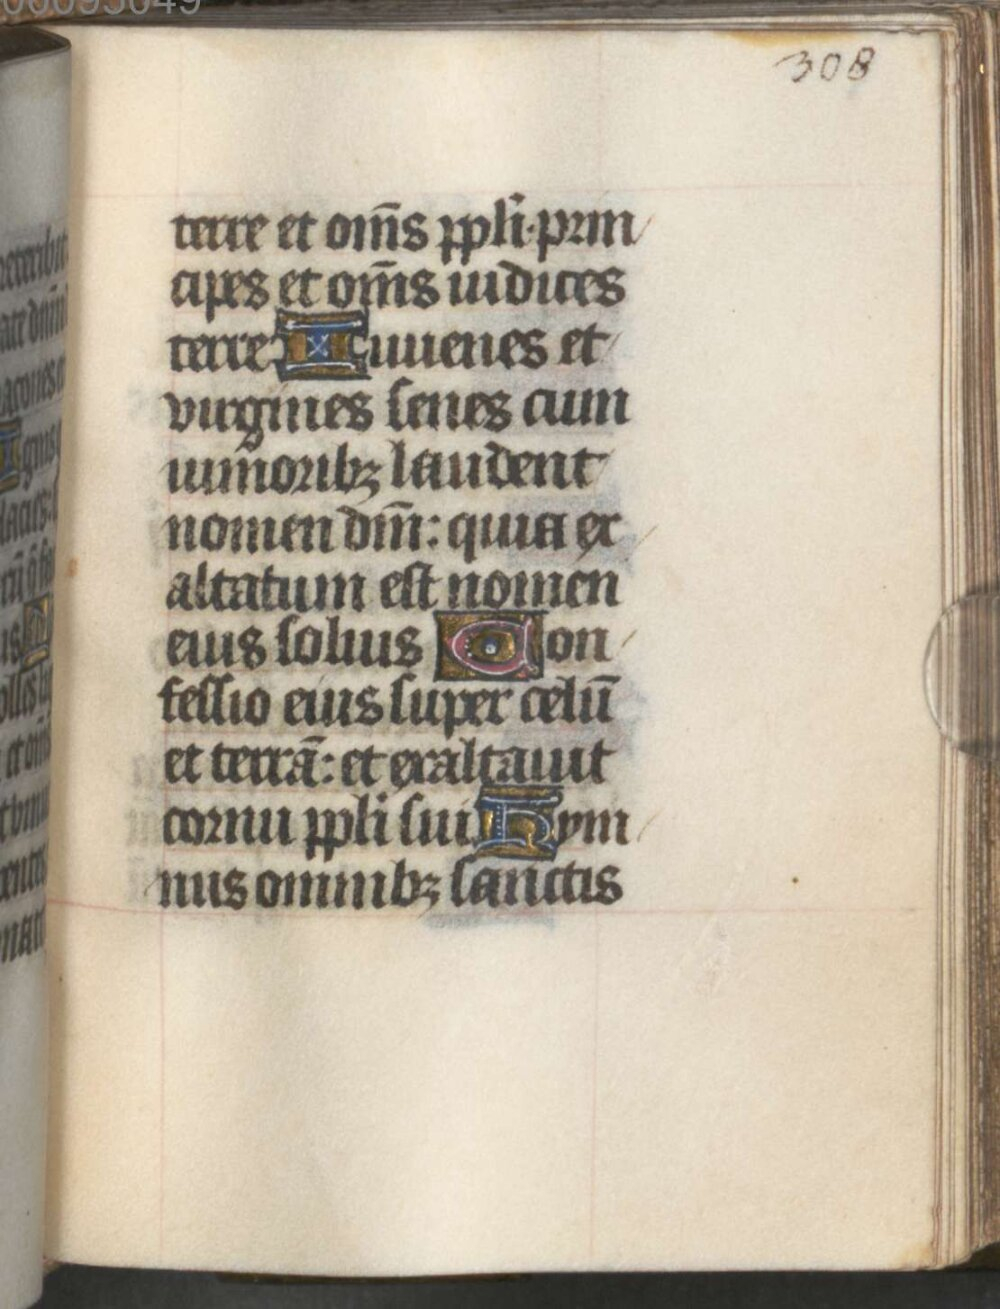 00095049
308
terre et om̄s ppl̄i·prin
cipes et om̄s iudices
terre Iuuenes et
virgines senes cum
iunioribꝫ laudent
nomen dm̄: quia ex
altatum est nomen
eius solius Con
fessio eius super celū
et terrā: et exaltauit
cornu ppl̄i sui Hym
nus omnibꝫ sanctis